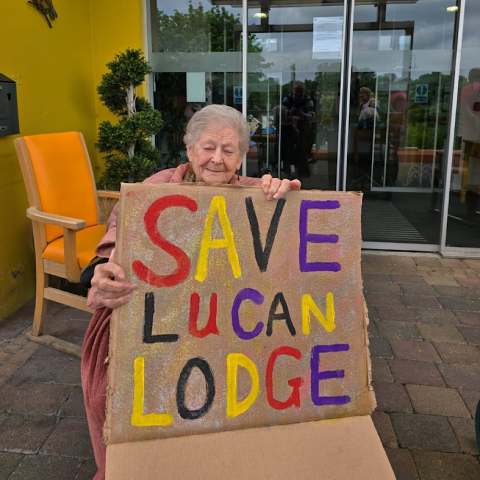 SAVE
LUCAN
LODGE